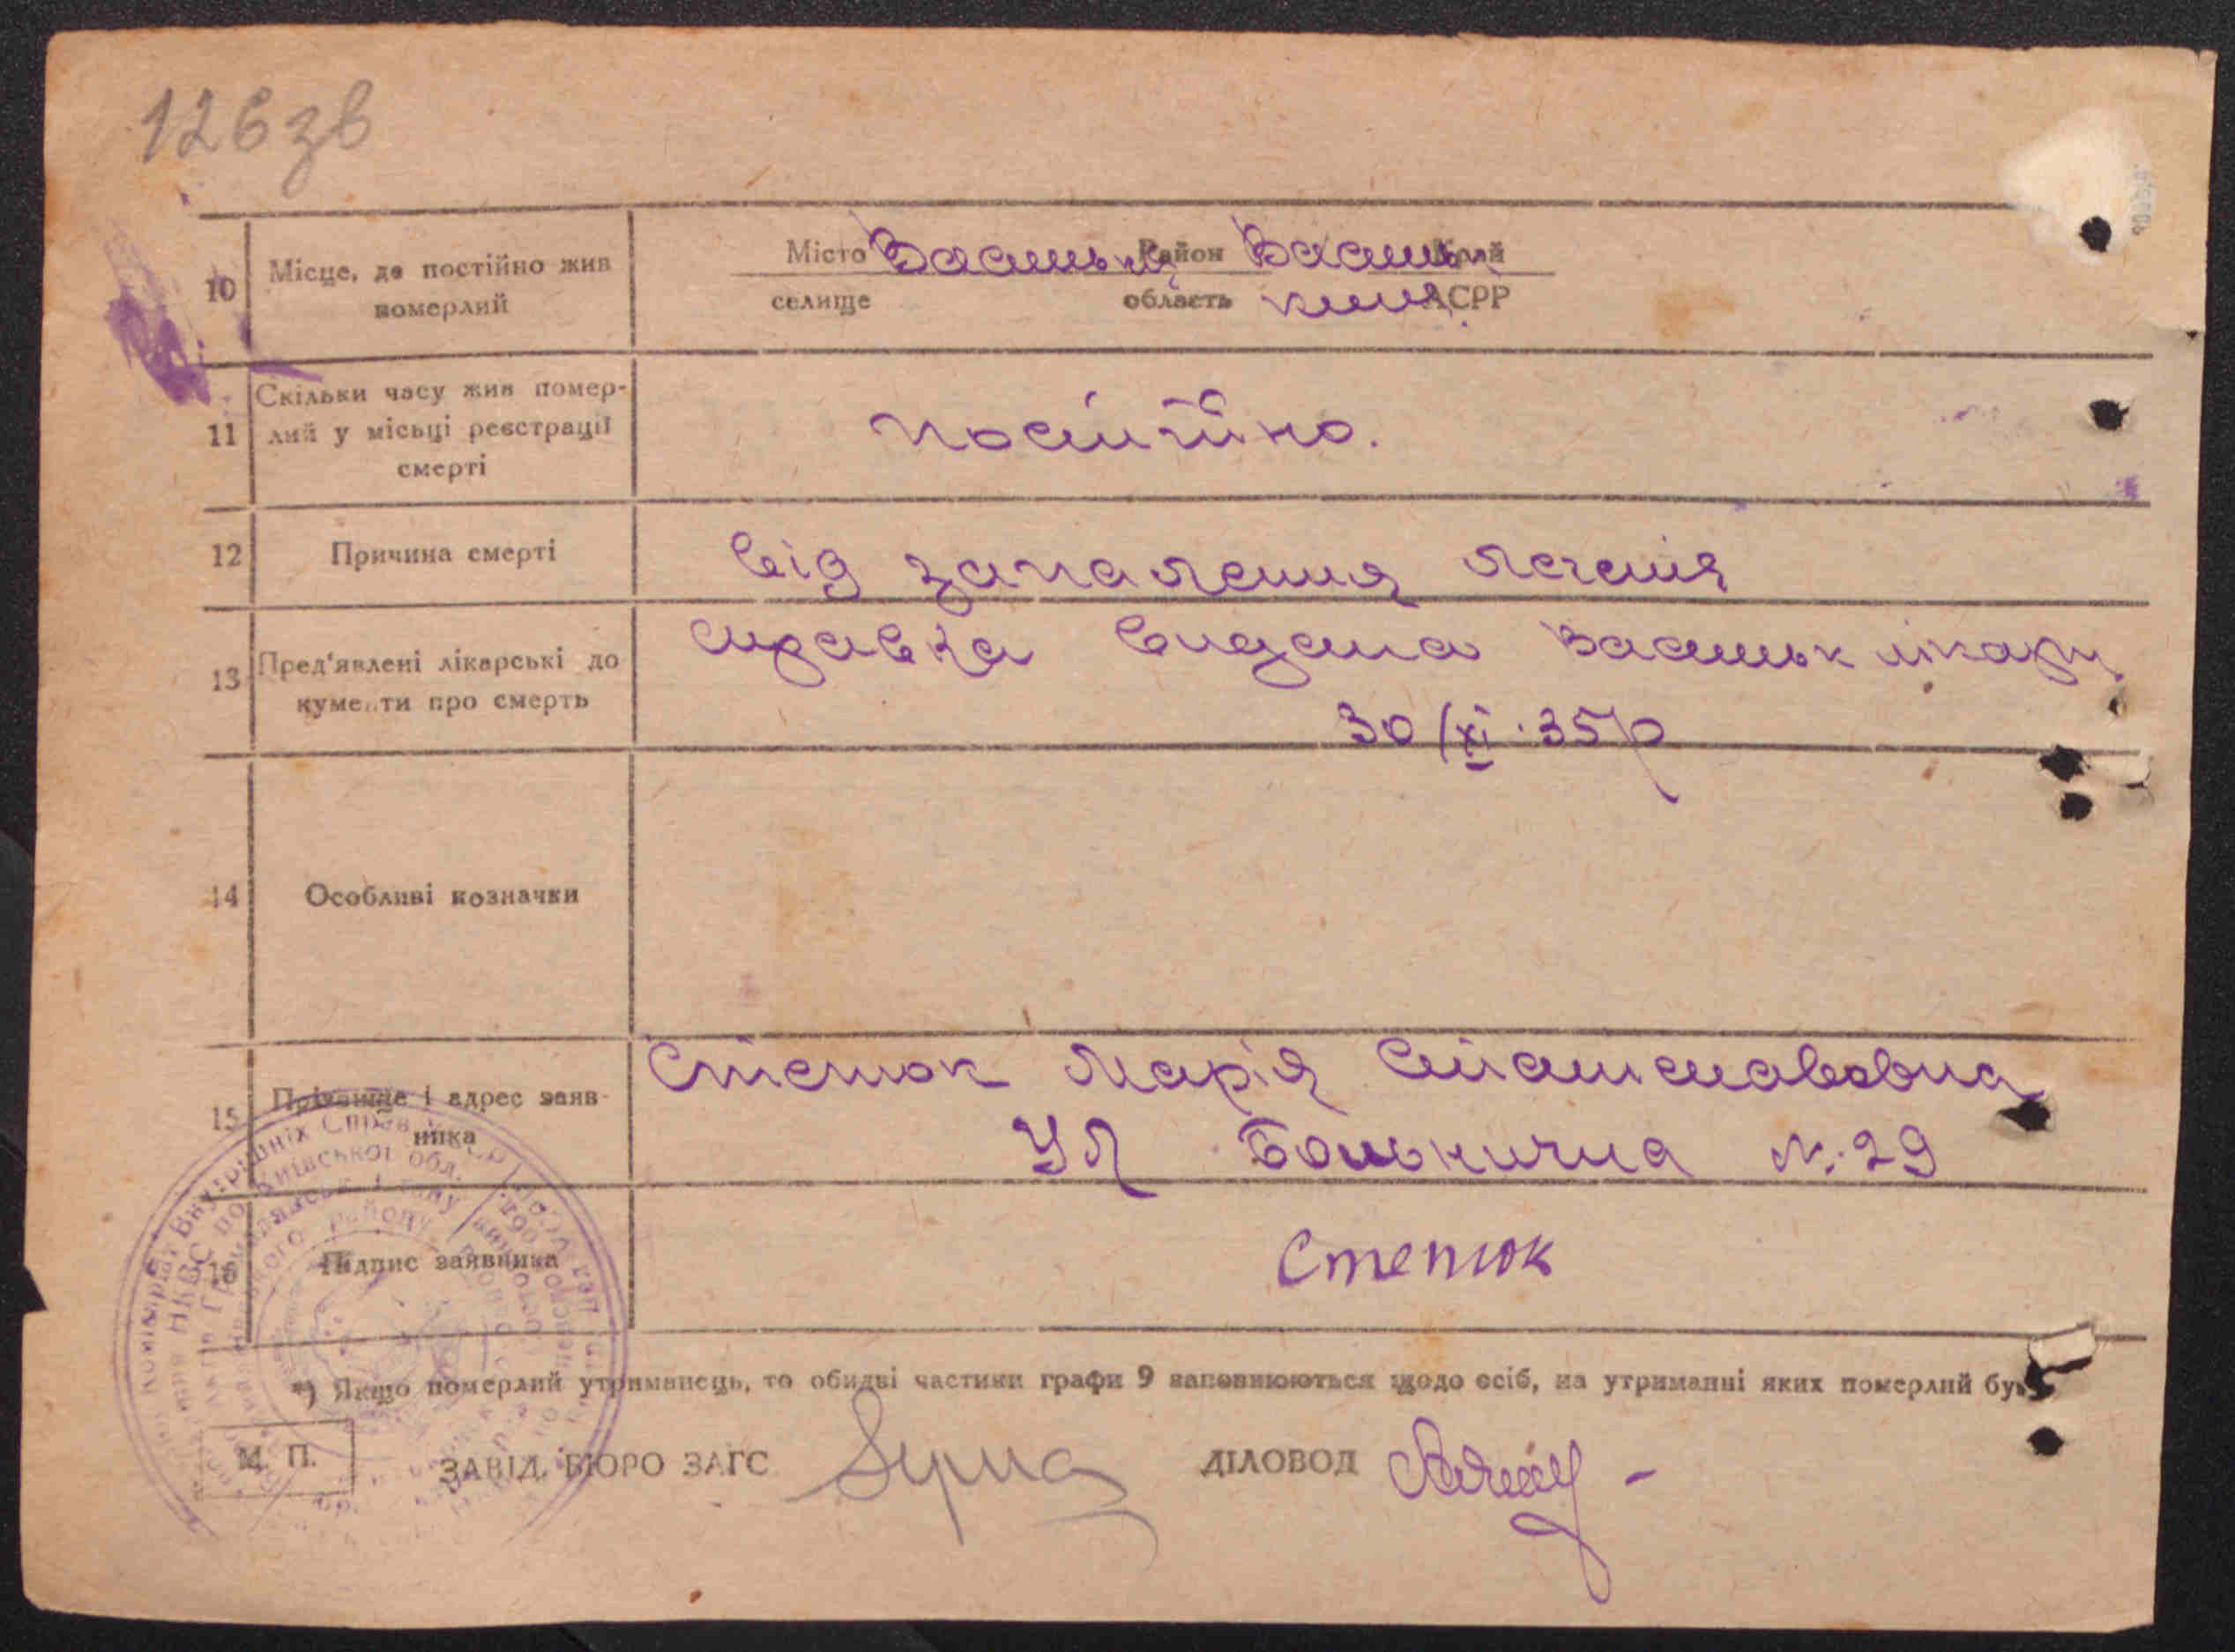 126 зв
10 Місце, де постійно жив померлий
Місто Район Край
селище область АСРР
11 Скільки часу жив помер-
лий у місьці реєстрації
смерті
постійно.
12 Причина смерті
від запалення легенів
13 Пред'явлені лікарські до
кументи про смерть
справка видана лікарн
30/XI.35р
14 Особливі позначки
15 Прізвище і адрес заяв-
ника
Степюк Марія Станіславовна
Ул Больнична №29
16 Підпис заявника
Степюк
*) Якщо померлий утриманець, то обидві частини графи 9 заповнюються щодо осіб, на утриманні яких померлий був
М. П.
ЗАВІД. БЮРО ЗАГС
ДІЛОВОД